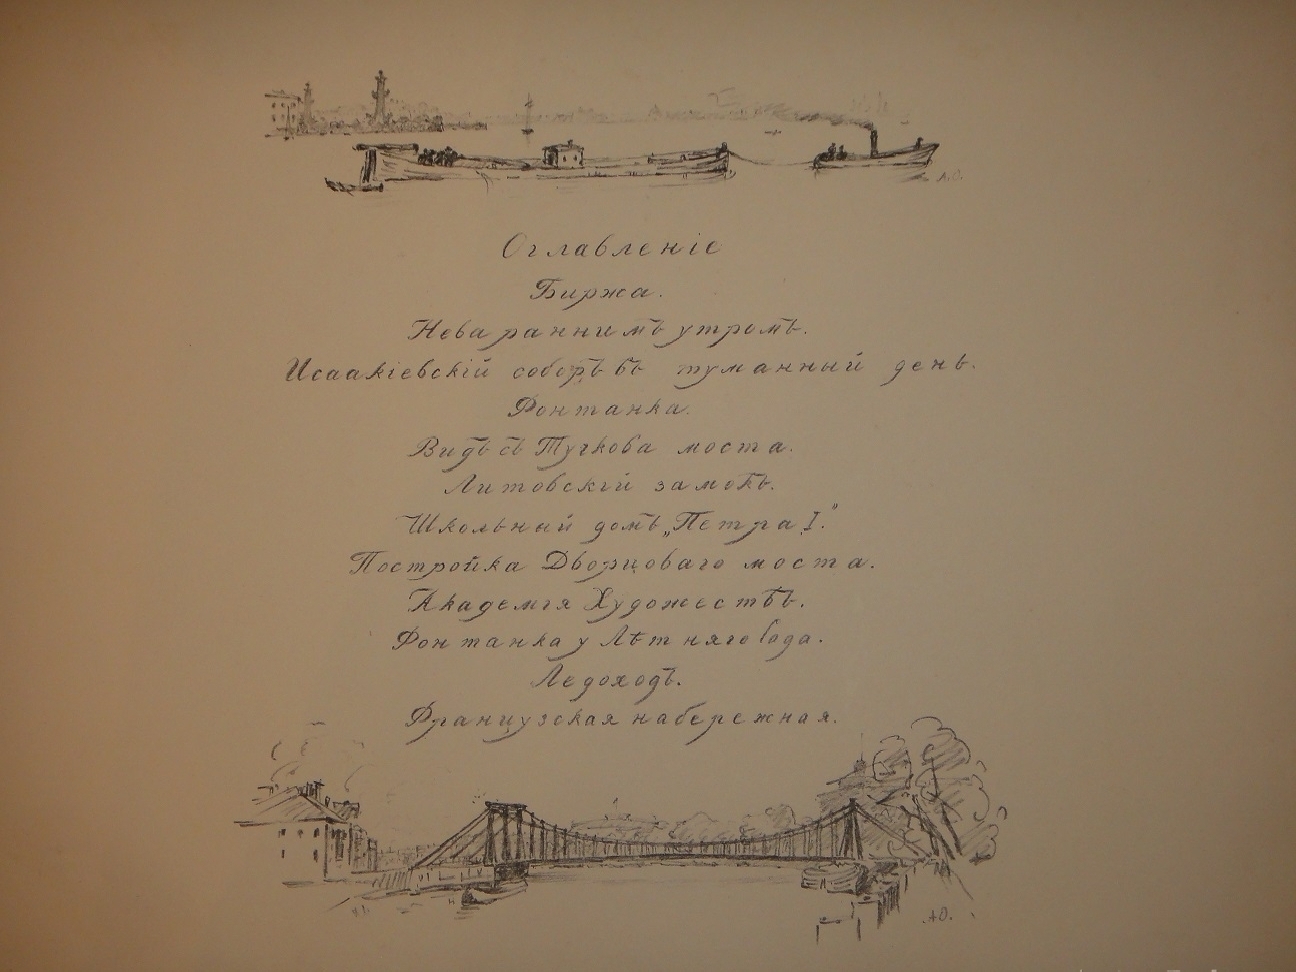 А.О.
Оглавленіе
Биржа.
Нева раннимъ утромъ.
Исаакіевскій соборъ въ туманный день.
Фонтанка.
Видъ съ Тучкова моста.
Литовскій замокъ.
Школьный домъ „Петра I.“
Постройка Дворцоваго моста.
Академія Художествъ.
Фонтанка у Лѣтняго Сада.
Ледоходъ.
Французская набережная.
А.О.